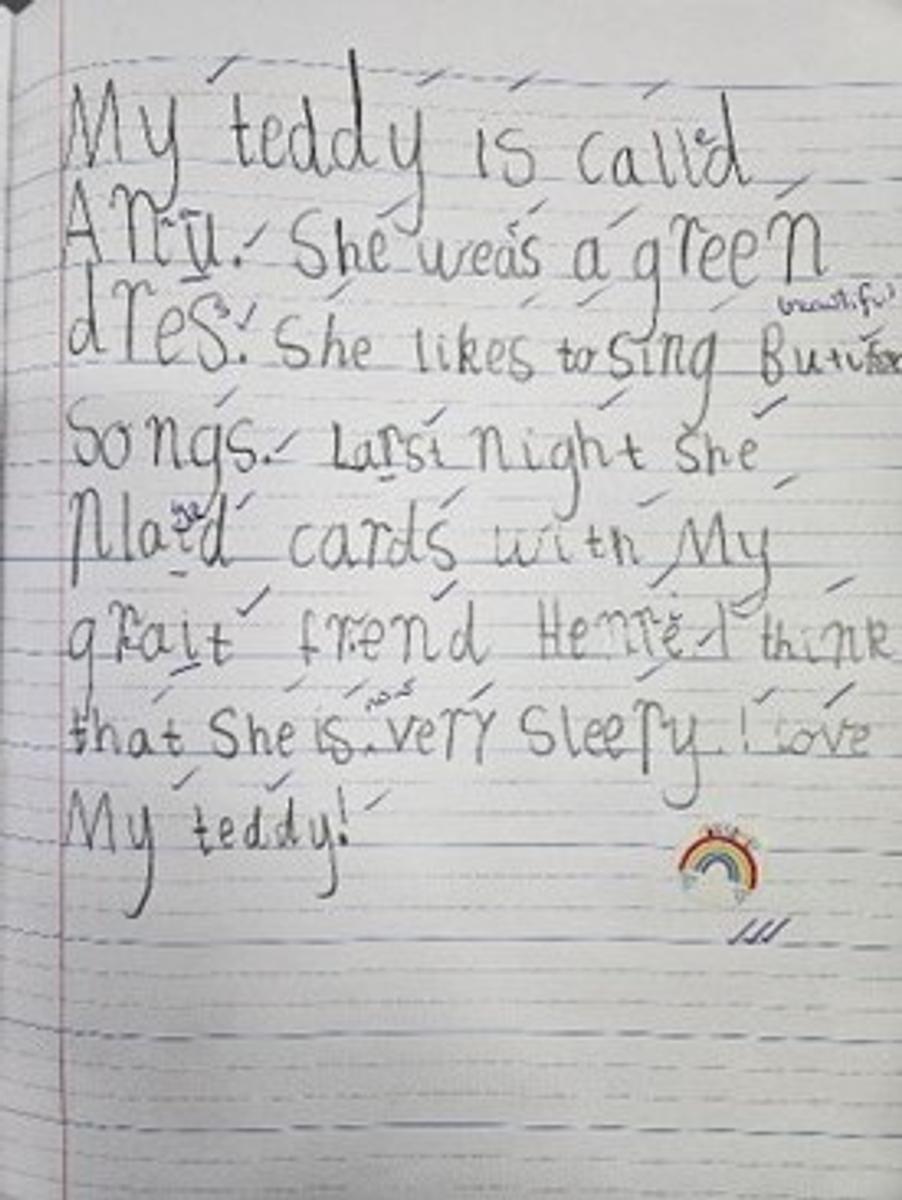 My teddy is called
Anu. She weas a green
beautiful
dres. She likes to sing
songs. Larst night she
Plaid cards with My
grait frend Henre. I think
that She is very Sleepy. I Love
My teddy!